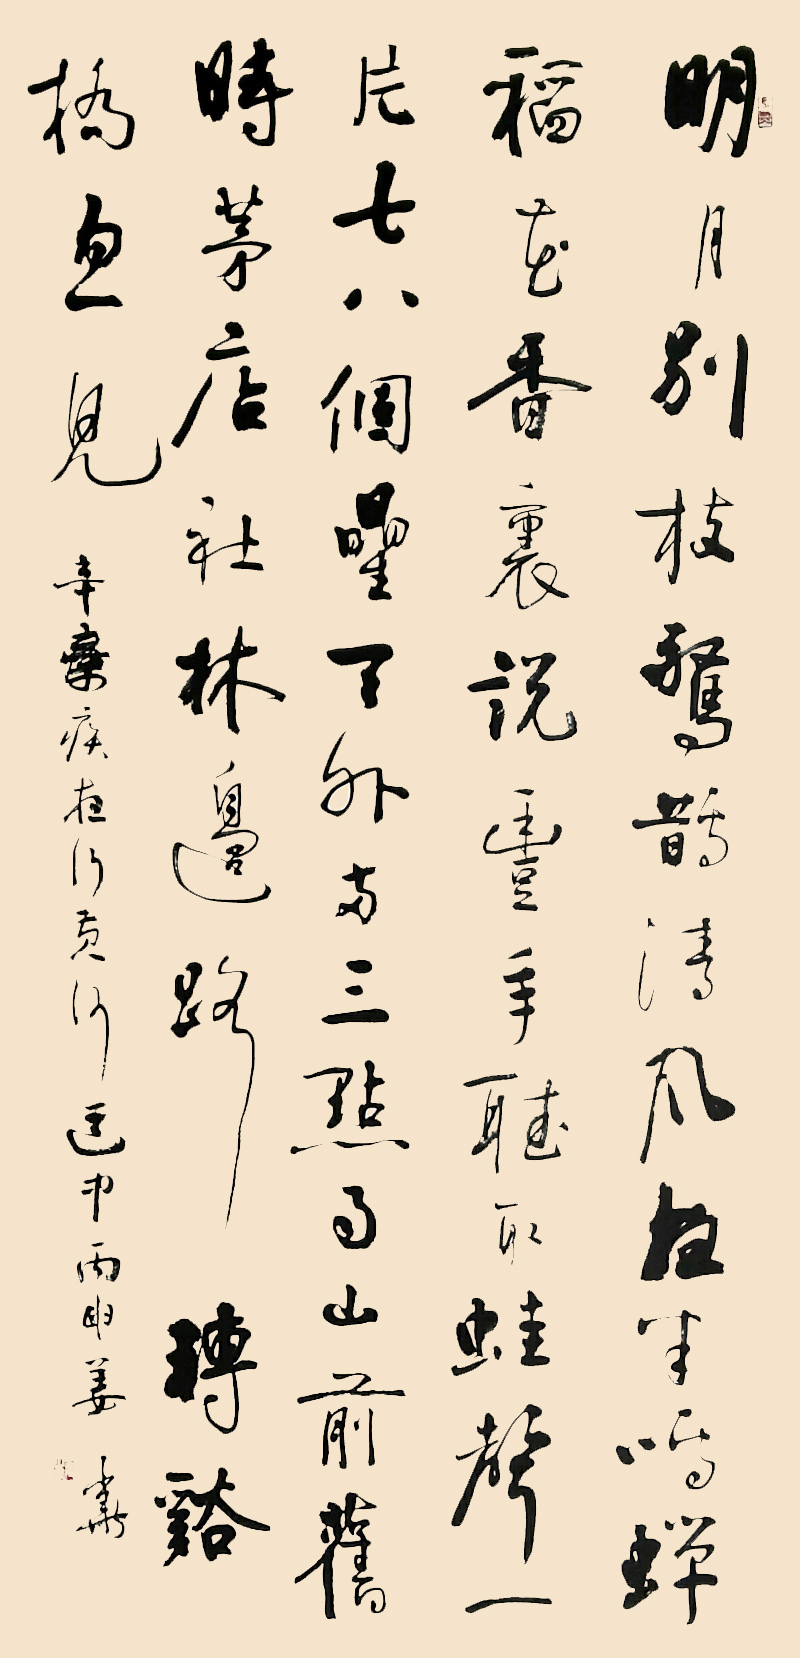 明月別枝驚鵲清風夜半鳴蟬
稻花香裏説豐年聽取蛙聲一
片七八個星天外兩三點雨山前舊
時茅店社林邊路轉谿
橋忽見
辛棄疾夜行黃沙道中丙申姜